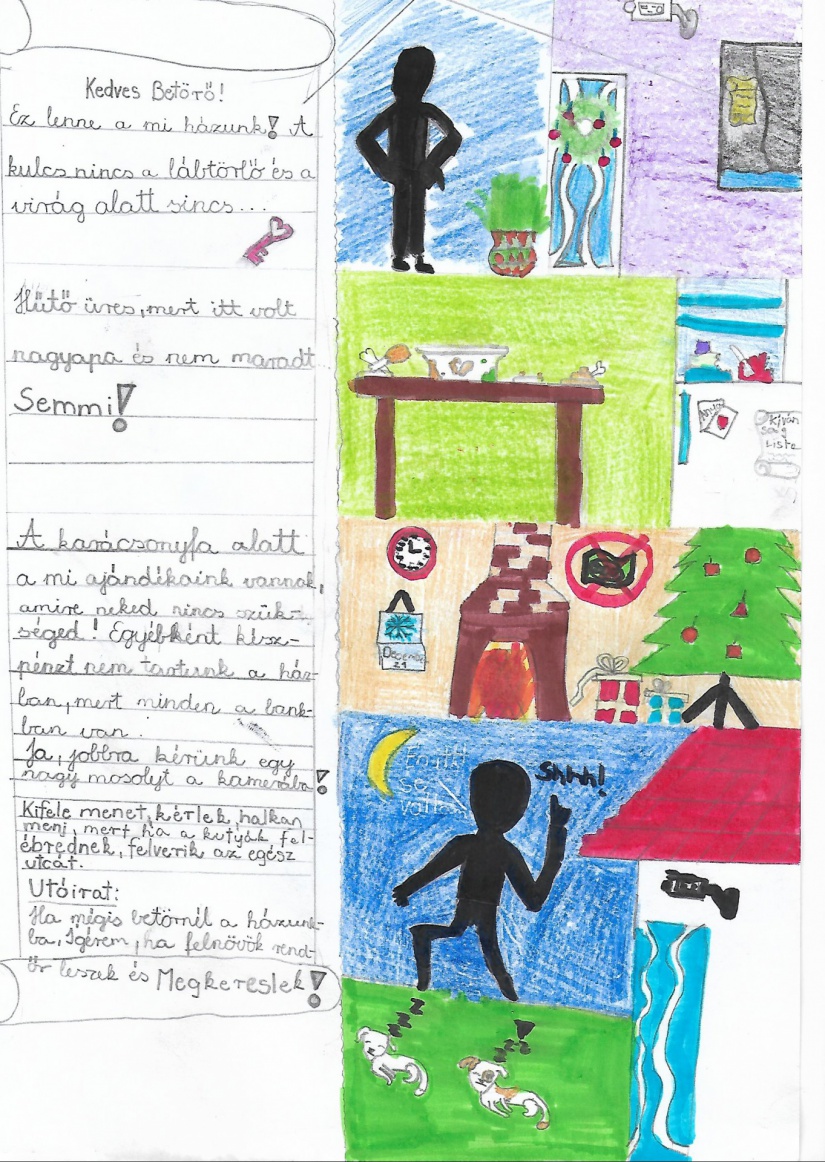 Kedves Betörő!
Ez lenne a mi házunk! A
kulcs nincs a lábtörlő és a
virág alatt sincs...
Hűtő üres, mert itt volt
nagyapa és nem maradt
Semmi!
A karácsonyfa alatt
a mi ajándékaink vannak,
amire neked nincs szük-
séged! Egyébként kész-
pénzt nem tartunk a ház-
ban, mert minden a bank-
ban van.
Ja, jobbra kérünk egy
nagy mosolyt a kamerába!
Kifele menet, kérlek, halkan
menj, mert ha a kutyák fel-
ébrednek, felverik az egész
utcát.
Utóirat:
Ha mégis betörnél a házunk-
ba, Ígérem, ha felnövök rend-
őr leszek és Megkereslek!
Kíván
ság
Lista
December
21
Shhh!
z z z
z z z